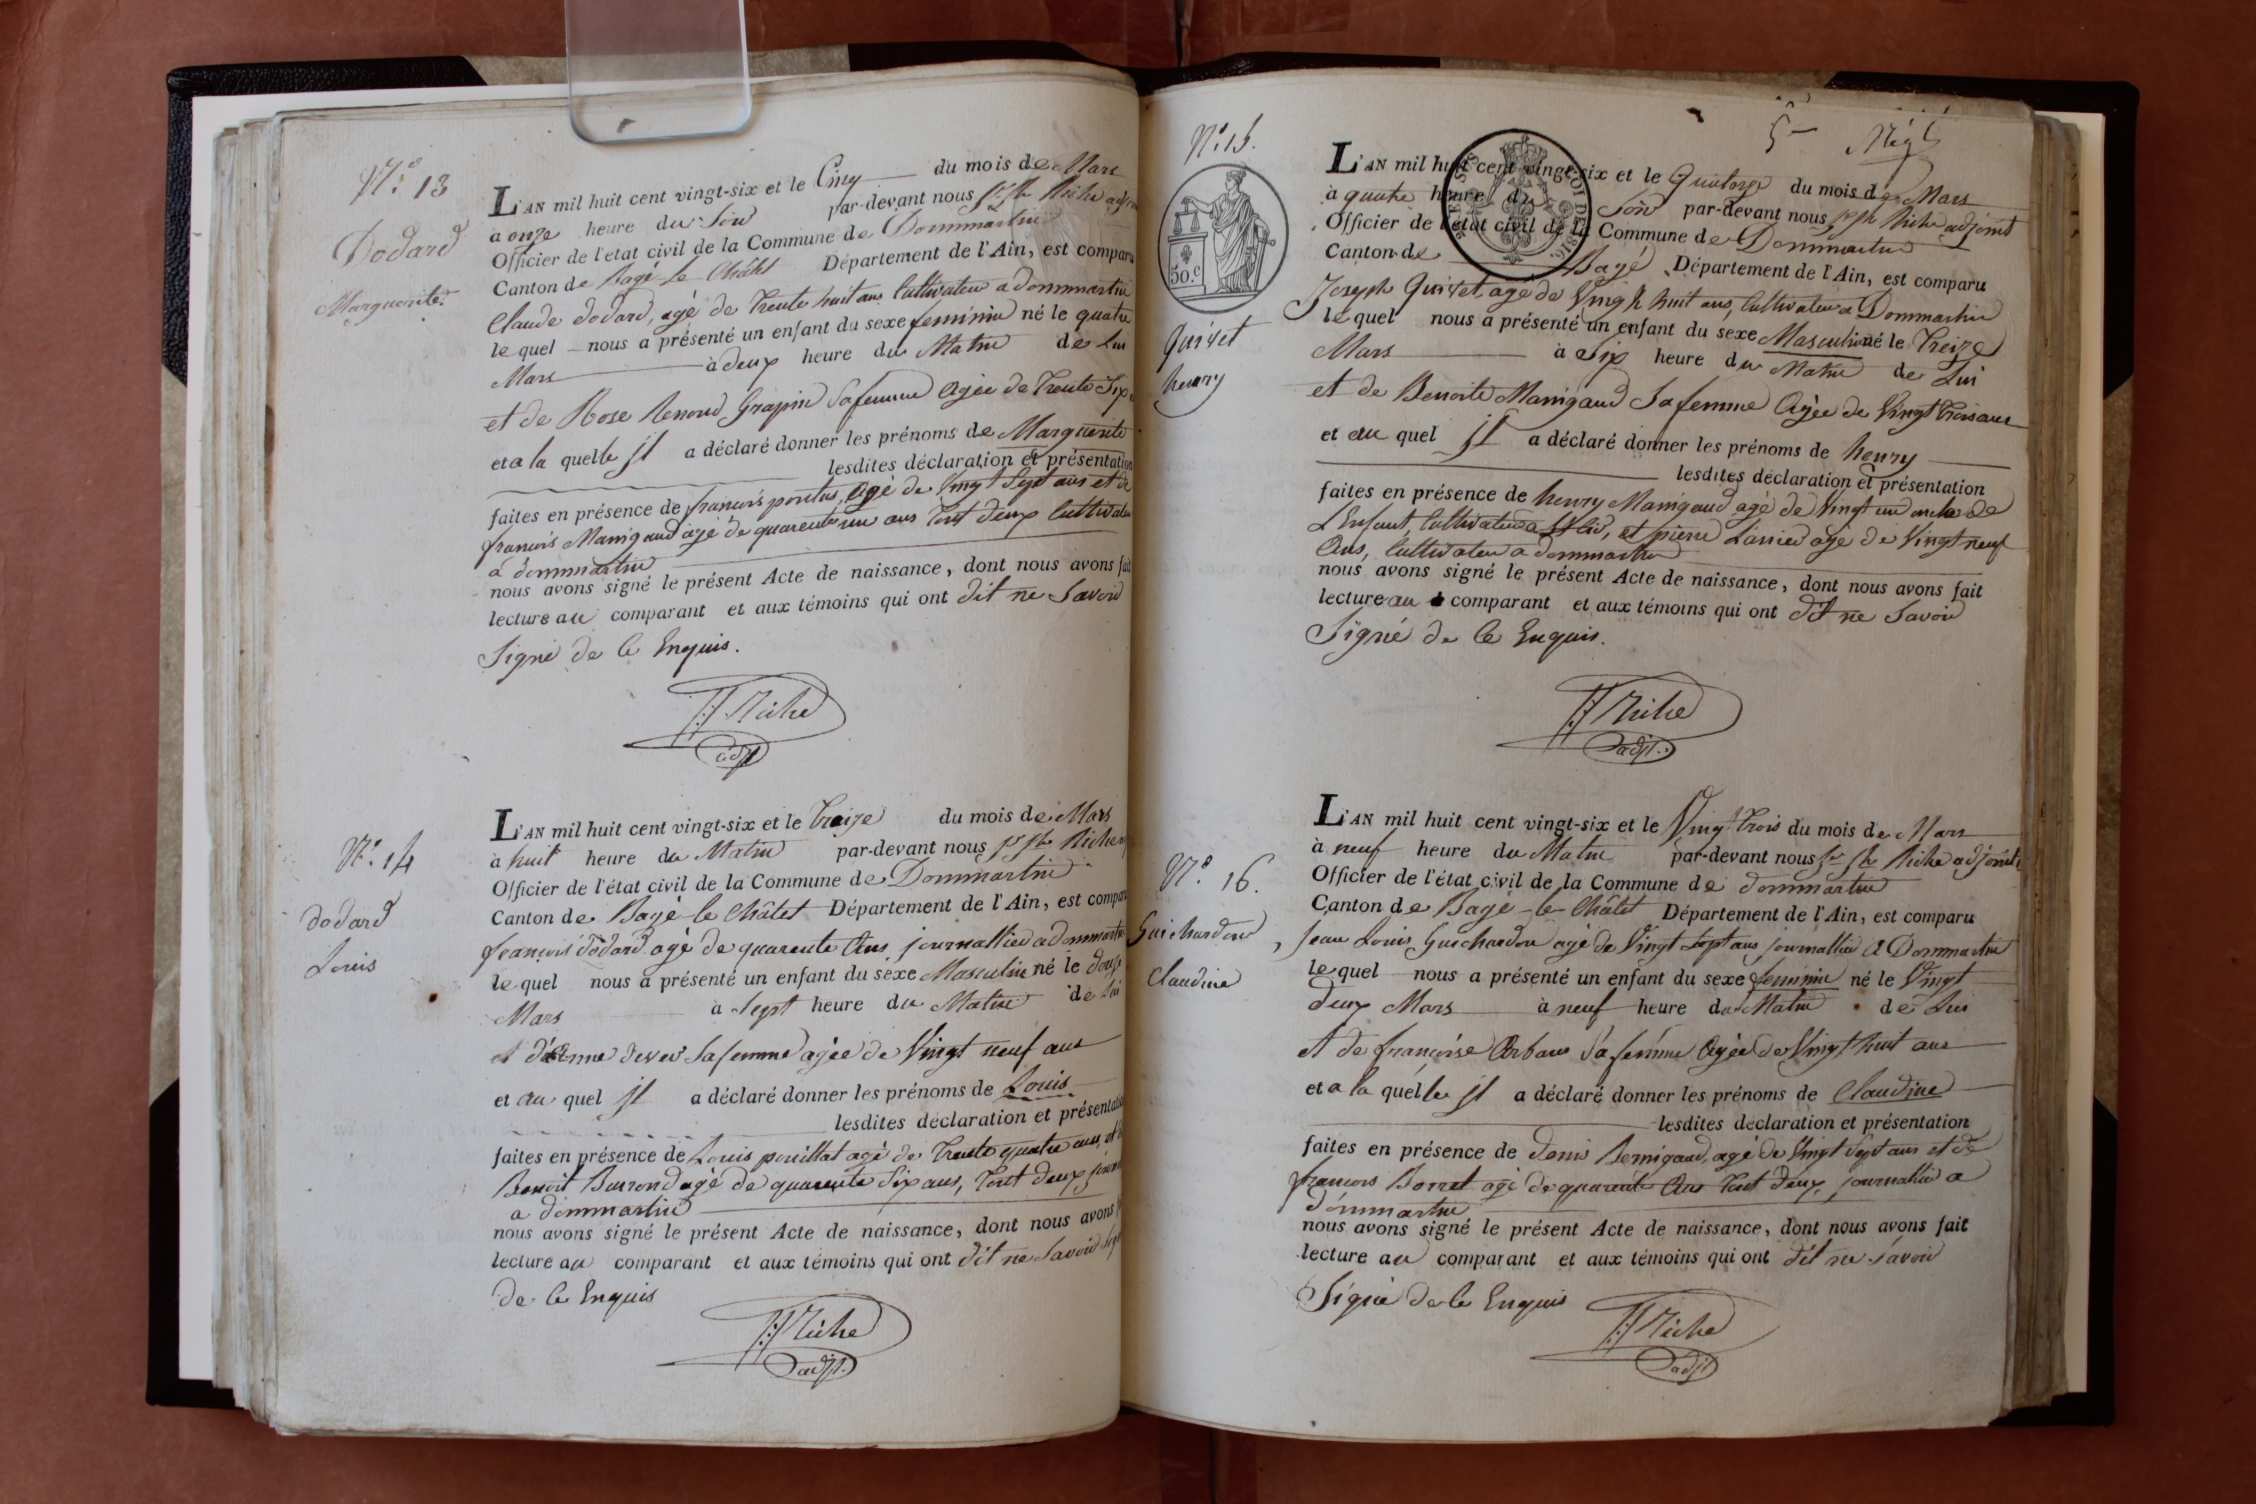 N.° 13
Dodard
Marguerite
L'AN mil huit cent vingt-six et le Cinq du mois de Mars
a onze heure du Soir par-devant nous Riche adjoint
Officier de l'etat civil de la Commune de Dommartin
Canton de Bagé le Châtel Département de l'Ain, est comparu
Claude dodard, agé de trente huit ans Cultivateur a dommartin
le quel nous a présenté un enfant du sexe feminin né le quatre
Mars à deux heure du Matin de Lui
et de Rose Renoud Grapin Sa femme Agée de trente Six
et a la quelle il a déclaré donner les prénoms de Marguerite
lesdites déclaration et présentation
faites en présence de francois pontus, Agé de Vingt Sept ans et de
francois Manigaud agé de quarente un ans tout deux Cultivateur
a dommartin
nous avons signé le présent Acte de naissance, dont nous avons fait
lecture au comparant et aux témoins qui ont dit ne Savoir
Signé de Ce Enquis.
Riche
adjt
N.° 14
dodard
Louis
L'AN mil huit cent vingt-six et le treize du mois de Mars
à huit heure du Matin par-devant nous Riche
Officier de l'état civil de la Commune de Dommartin
Canton de Bagé le Châtel Département de l'Ain, est comparu
francois dodard agé de quarente Ans journallier a dommartin
le quel nous a présenté un enfant du sexe Masculin né le douze
Mars à Sept heure du Matin de Lui
et d'Anne Sa femme agée de Vingt neuf ans
et au quel il a déclaré donner les prénoms de Louis
lesdites déclaration et présentation
faites en présence de Louis pouillat agé de trente quatre ans, et de
Benoit Burrond agé de quarente Six ans, tout deux
a dommartin
nous avons signé le présent Acte de naissance, dont nous avons
lecture au comparant et aux témoins qui ont dit ne Savoir
de Ce Enquis
Riche
adjt.
5
N.° 15.
50.c
Quivet
henry
L'AN mil huit cent vingt-six et le Quatorze du mois de Mars
à quatre heure du Soir par-devant nous Riche adjoint
Officier de l'état civil de la Commune de Dommartin
Canton de Bagé Département de l'Ain, est comparu
Joseph Quivet, agé de Vingt huit ans, Cultivateur a Dommartin
le quel nous a présenté un enfant du sexe Masculin né le treize
Mars à Six heure du Matin de Lui
et de Benoite Manigaud Sa femme Agée de Vingt trois ans
et au quel il a déclaré donner les prénoms de henry
lesdites déclaration et présentation
faites en présence de henry Manigaud agé de Vingt un oncle de
L'Enfant, Cultivateur a et pierre agé de Vingt neuf
Ans, Cultivateur a dommartin
nous avons signé le présent Acte de naissance, dont nous avons fait
lecture au comparant et aux témoins qui ont dit ne Savoir
Signé de Ce Enquis.
Riche
adjt.
N.° 16.
Guichardon
Claudine
L'AN mil huit cent vingt-six et le Vingt trois du mois de Mars
à neuf heure du Matin par-devant nous Riche adjoint
Officier de l'état civil de la Commune de dommartin
Canton de Bagé-le-Châtel Département de l'Ain, est comparu
Jean Louis Guichardon agé de Vingt Sept ans journallier A Dommartin
le quel nous a présenté un enfant du sexe feminin né le Vingt
deux Mars à neuf heure du Matin de Lui
et de françoise Arbans Sa femme Agée de Vingt huit ans
et a la quelle il a déclaré donner les prénoms de Claudine
lesdites déclaration et présentation
faites en présence de denis Bernigaud, agé de Vingt Sept ans et de
francois Borret agé de quarante Ans tout deux journallier a
dommartin
nous avons signé le présent Acte de naissance, dont nous avons fait
lecture au comparant et aux témoins qui ont dit ne Savoir
Signé de Ce Enquis
Riche
adjt